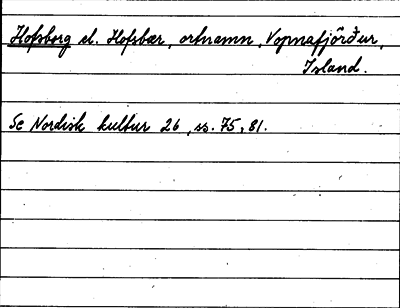 Hofsborg el. Hofsbær, ortnamn, Vopnafjörður,
Island.
Se Nordisk kultur 26, ss. 75, 81.